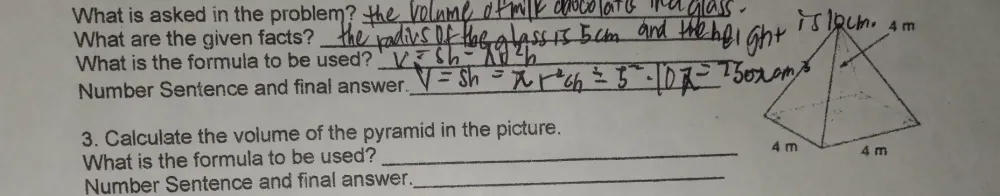 What is asked in the problem? the volume of milk chocolate in a glass.
What are the given facts? the radius of the glass is 5cm and the height is 10cm.
What is the formula to be used? V = Sh =
Number Sentence and final answer. V = Sh = π r²h = 5² · 10 π = 250πcm³
4 m
3. Calculate the volume of the pyramid in the picture.
What is the formula to be used?
Number Sentence and final answer.
4 m
4 m